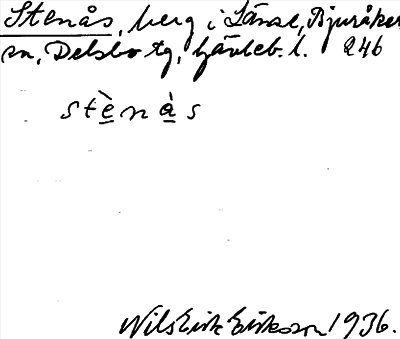 Stenås, berg i Länse, Bjuråker
sn, Delsbo tg, Gävleb. l. 246
stè̲nà̲s
Nils Erik Eriksson 1936.